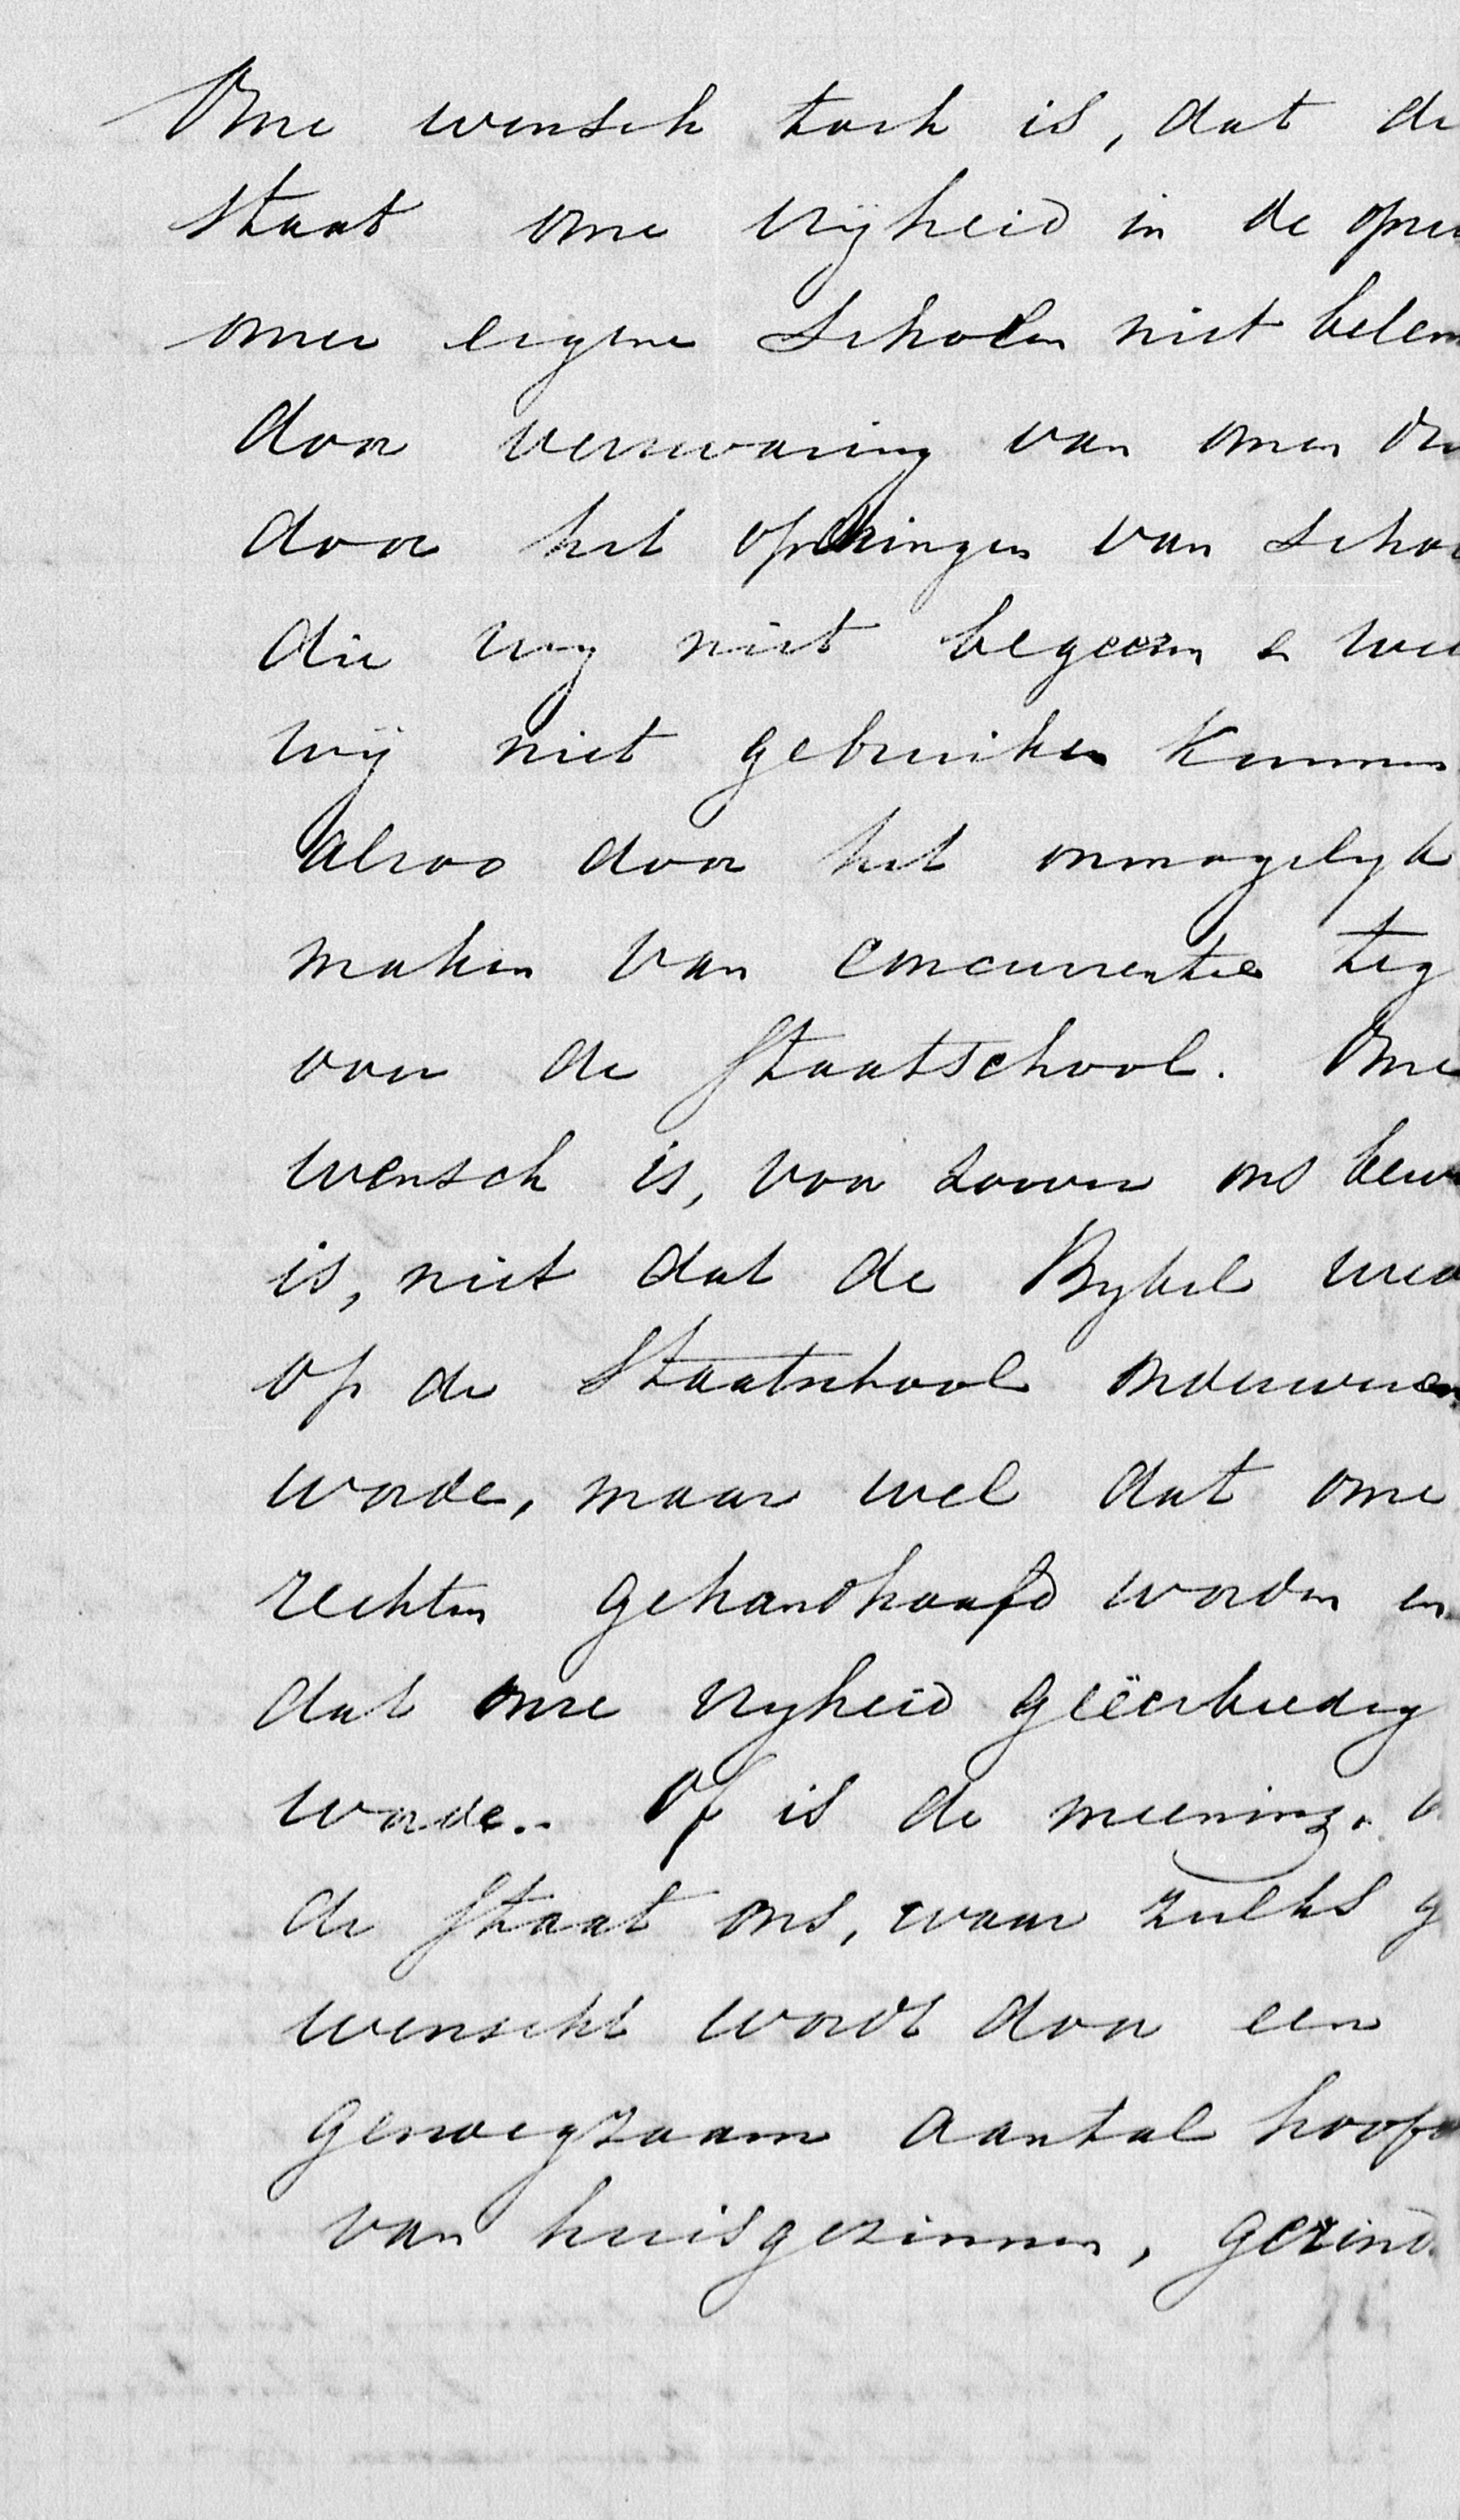 Onze wensch toch is, dat de
Staat onze vrijheid in de opri
onzer eigene Scholen niet belem
door verzwaring van onzen dr
door het opdringen van Scho
die wij niet begeeren & we
wij niet gebruiken kunnen
alzoo door het onmogelijk
maken van concurrentie teg
over de Staatschool. Onze
wensch is, voor zoover ons bew
is, niet dat de Bijbel wed
op de Staatschool onderwezen
worde, maar wel dat onze
rechten gehandhaafd worden en
dat onze vrijheid geëerbiedig
worde. Of is de meening,
de Staat ons, waar zulks g
wenscht wordt door een
genoegzaam aantal hoofd
van huisgezinnen, gezind